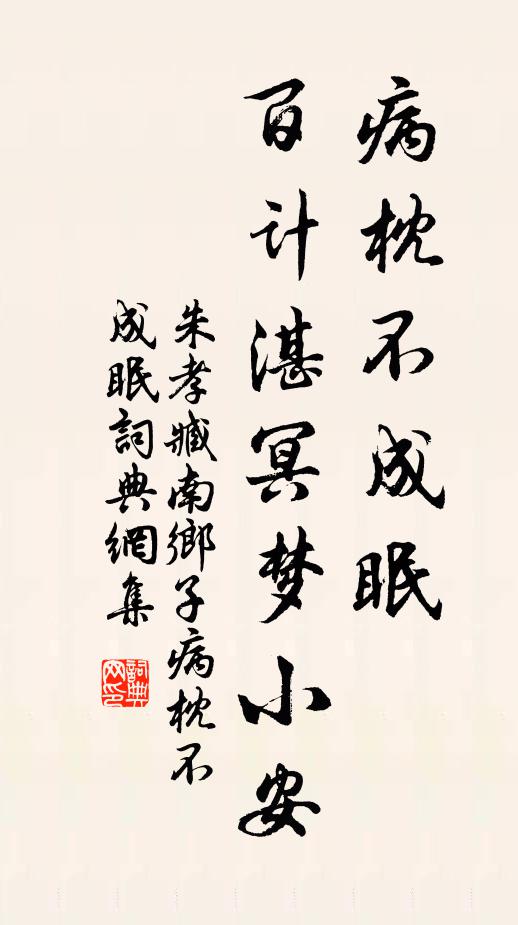 病枕不成眠
百计湛冥梦小安
朱孝臧南鄉子病枕不
成眠詞典網集
詞典网印